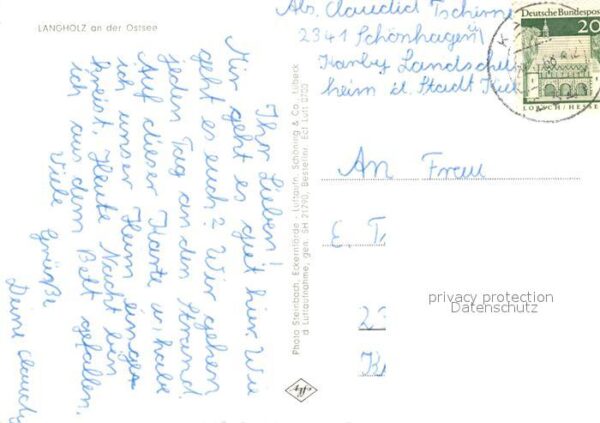 LANGHOLZ an der Ostsee
Abs. Claudia
2341 Schönhagen
Karby Landschul
heim d. Stadt Kiel
Deutsche Bundespost
20
LORSCH/HESSEN
Ihr Lieben!
Mir geht es gut hier. Wie
geht es euch? Wir gehen
jeden Tag an den Strand.
Auf dieser Karte habe
ich unser Heim einge-
kreist. Heute Nacht bin
ich aus dem Bett gefallen.
Viele Grüße
Deine Claudia
Photo Steinbach, Eckernförde - Luftaufn. Schöning & Co., Lübeck
d Luftaufnahme, gen. SH 21790, Bestellnr. Ecf Luft 0705
An Frau
E. T
23
K
privacy protection
Datenschutz